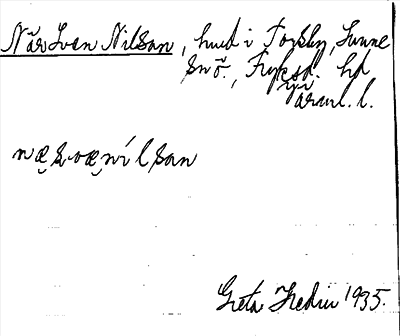 När Sven Nilsan, hmd i Torsby, Sunne
sn ö., Fryksd. hd
Värml. l.
næsvænílsan
Greta Hedin 1935.